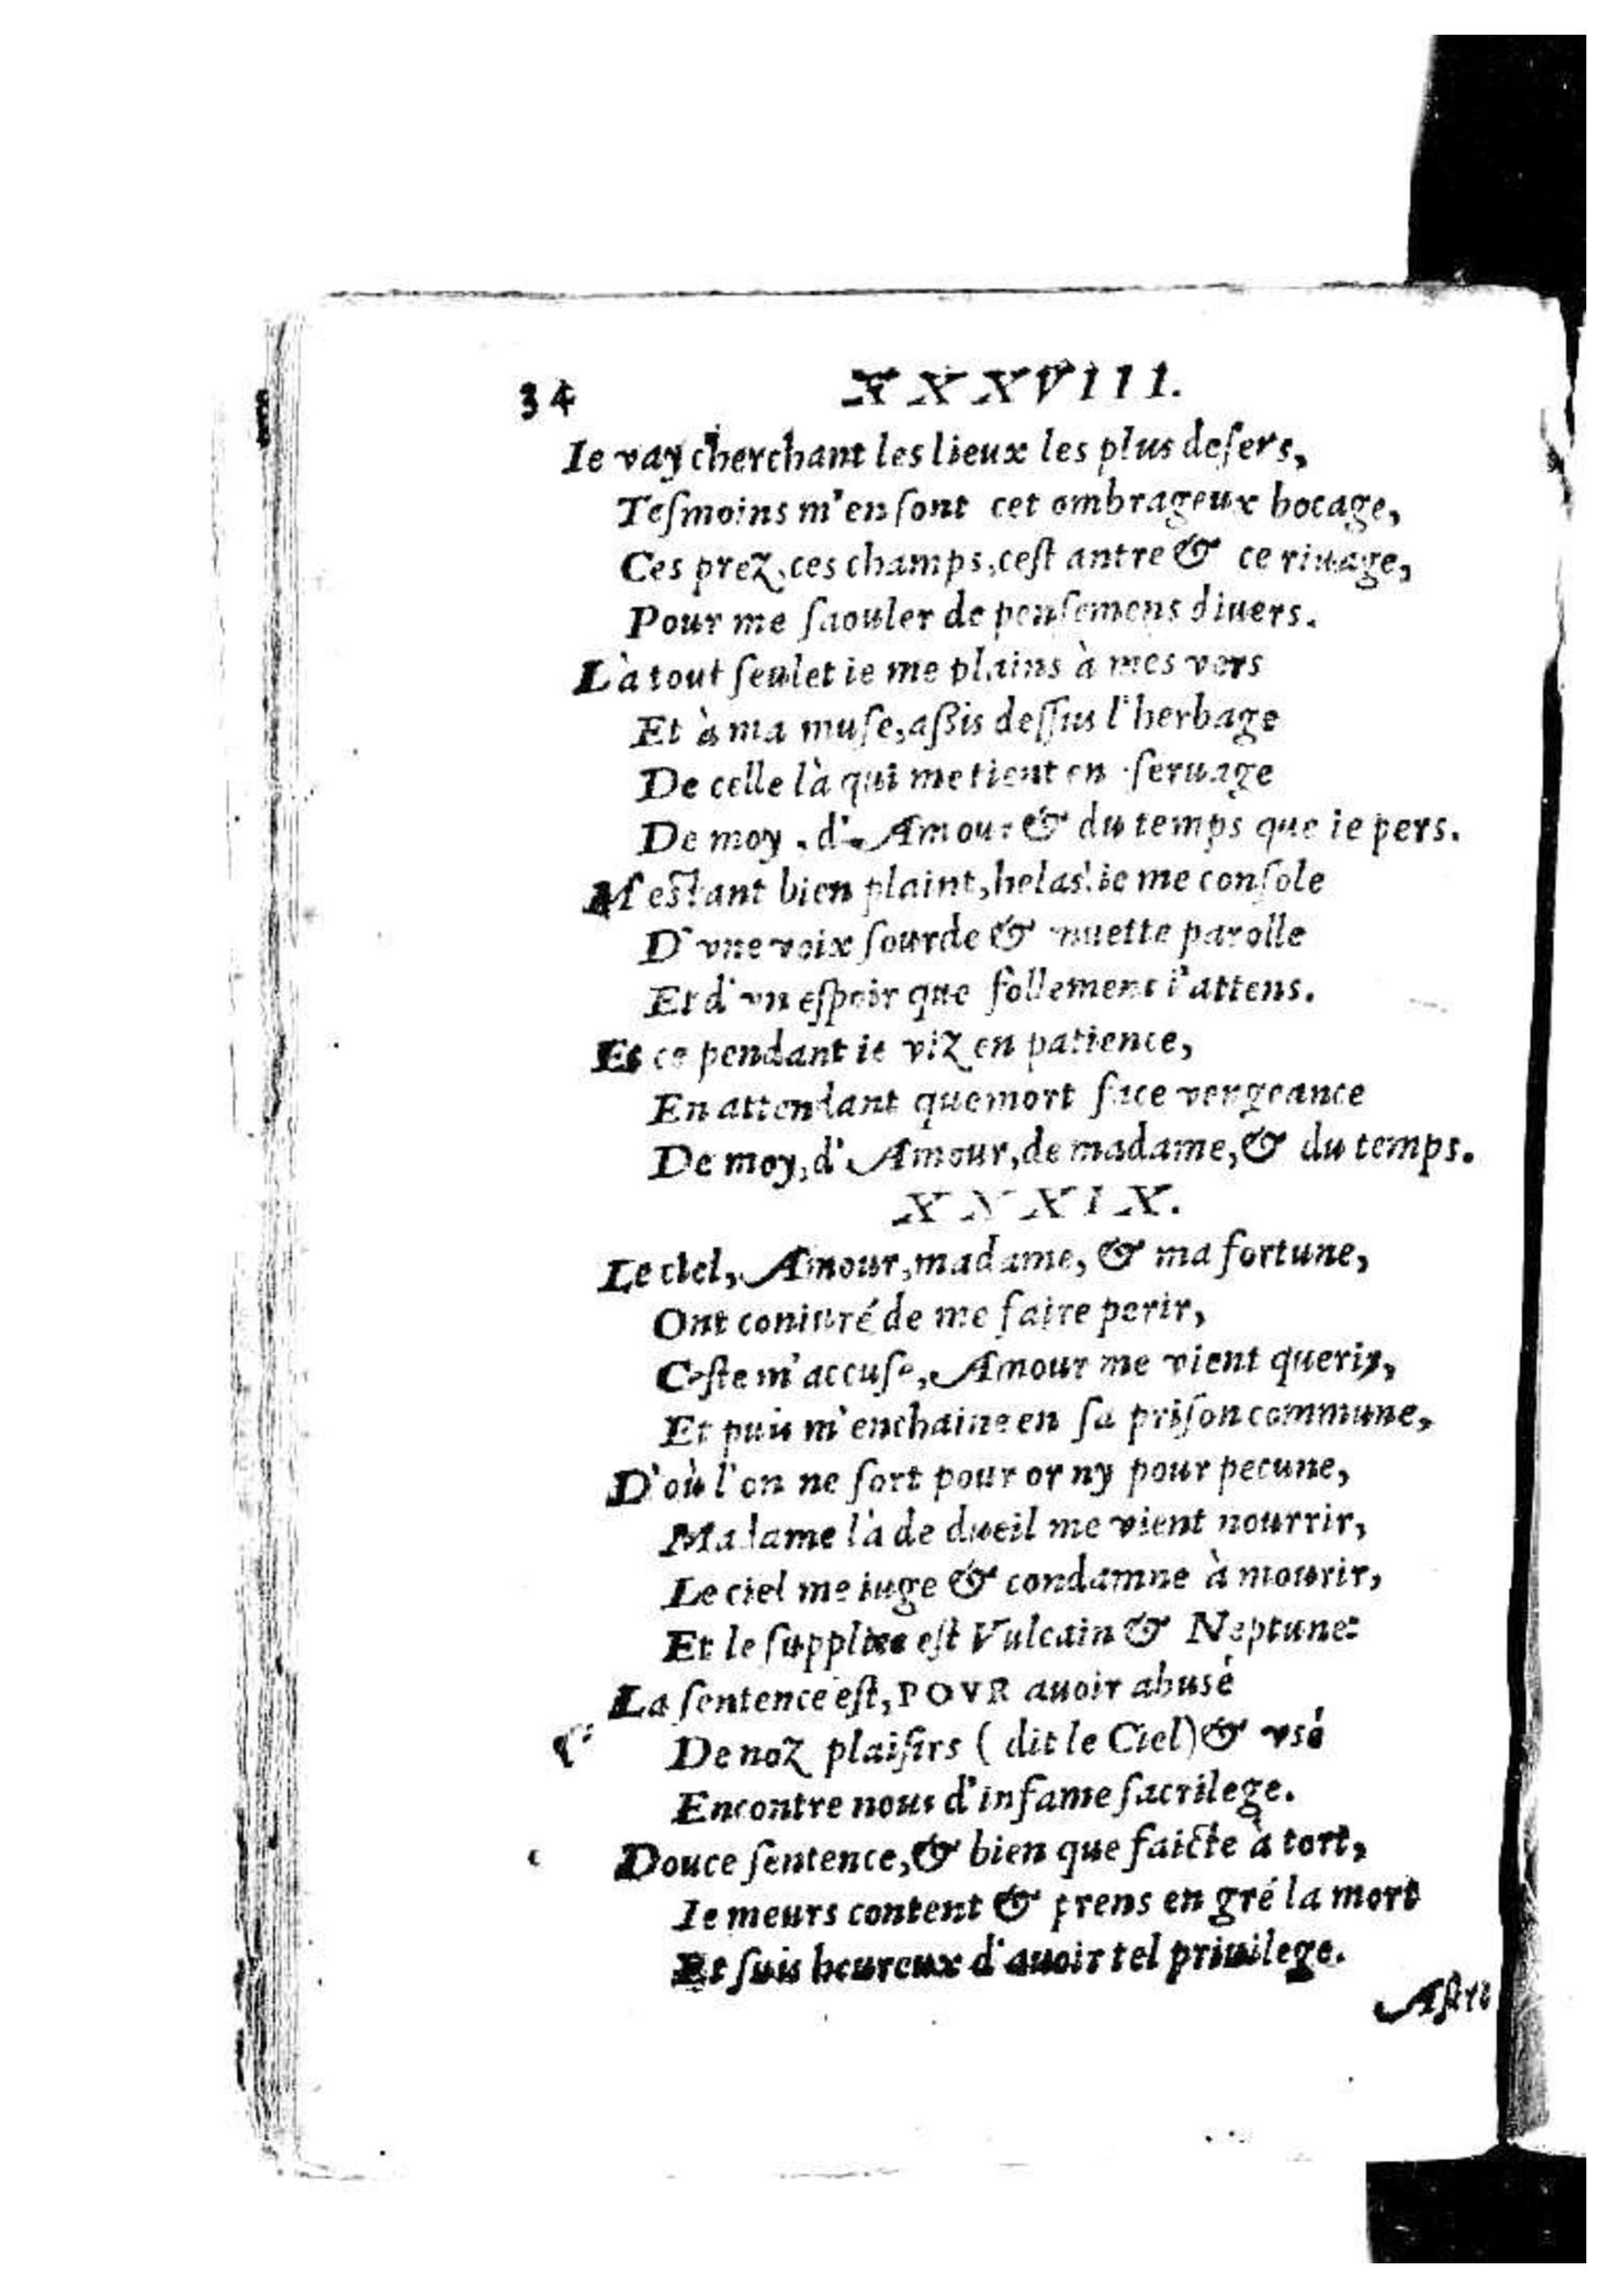 34 XXXVIII.
Ie vay cherchant les lieux les plus desers,
Tesmoins m'en sont cet ombrageux bocage,
Ces prez, ces champs, cest antre & ce riuage,
Pour me saouler de pensemens diuers.
Là tout seulet ie me plains à mes vers
Et à ma muse, aßis dessus l'herbage
De celle là qui me tient en seruage
De moy, d'Amour & du temps que ie pers.
M'estant bien plaint, helas! ie me console
D'vne voix sourde & muette parolle
Et d'vn espoir que follement i'attens.
Et ce pendant ie viz en patience,
En attendant que mort face vengeance
De moy, d'Amour, de madame, & du temps.
XXXIX.
Le ciel, Amour, madame, & ma fortune,
Ont coniuré de me faire perir,
Ceste m'accuse, Amour me vient querir,
Et puis m'enchaine en sa prison commune,
D'où l'on ne sort pour or ny pour pecune,
Madame là de dueil me vient nourrir,
Le ciel me iuge & condamne à mourir,
Et le supplice est Vulcain & Neptune:
La sentence est, POVR auoir abusé
De noz plaisirs (dit le Ciel) & vsé
Encontre nous d'infame sacrilege.
Douce sentence, & bien que faicte à tort,
Ie meurs content & prens en gré la mort
Et suis heureux d'auoir tel priuilege.
Astre